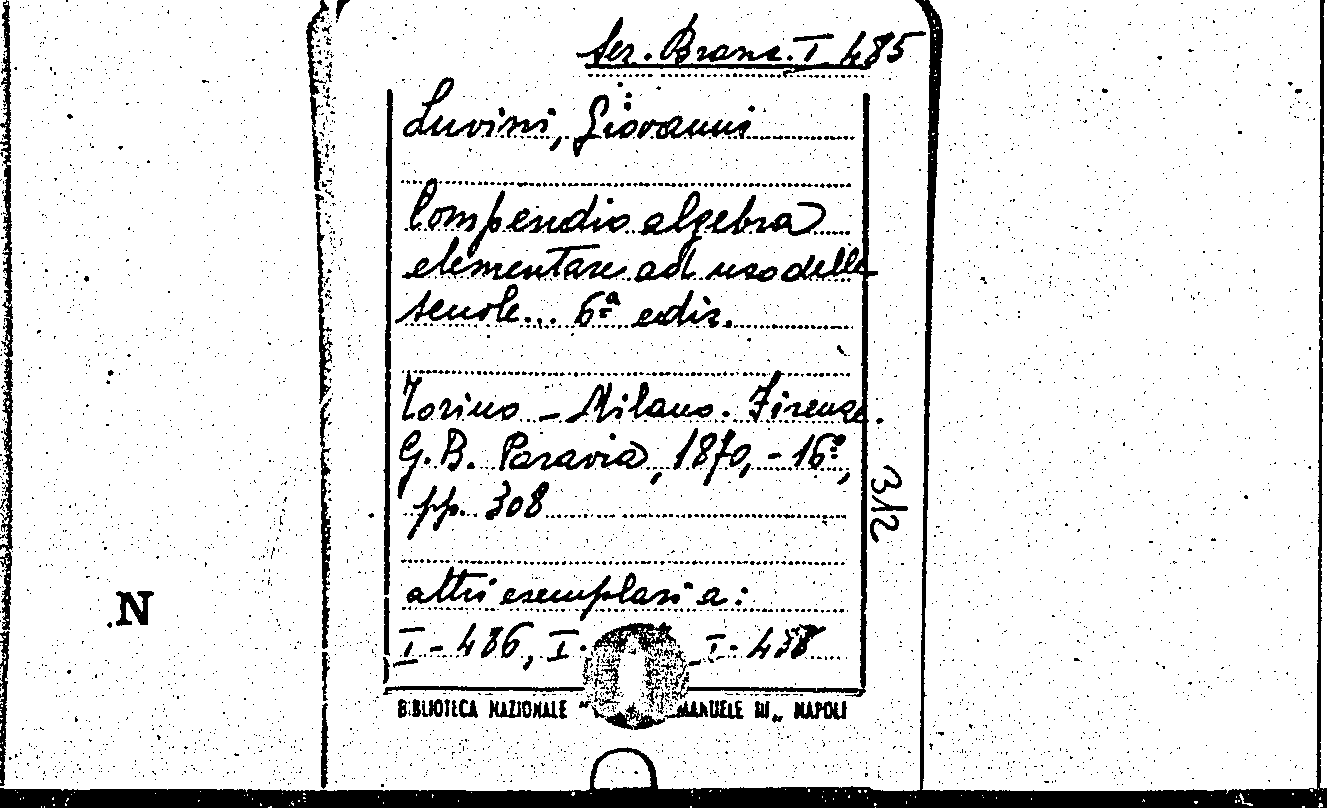 Ser. Branc. I 485
Luvini, Giovanni
Compendio algebra
elementare ad uso delle
scuole... 6ª ediz.
Torino - Milano. Firenze.
G.B. Paravia, 1870, - 16º,
pp. 308
3/2
altri esemplari a:
N
I - 486, I- I- 488
BIBLIOTECA NAZIONALE " MANUELE III„ NAPOLI